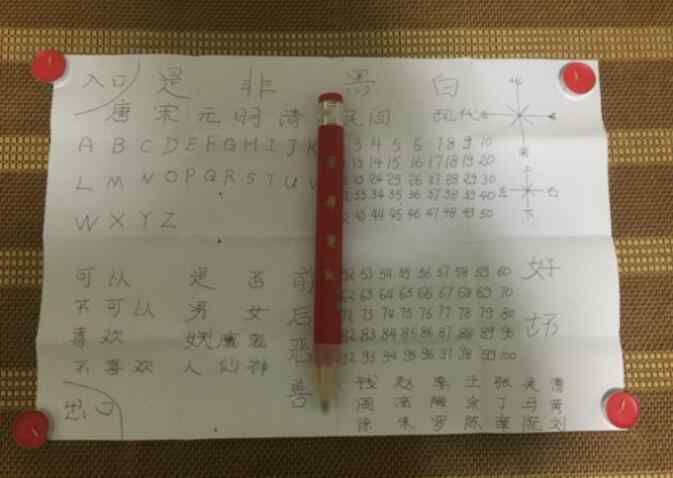 入口 是 非 黑 白 北
唐 宋 元 明 清 民间 现代
A B C D E F G H I J K 3 4 5 6 7 8 9 10
13 14 15 16 17 18 19 20 南
上
L M N O P Q R S T U V 23 24 25 26 27 28 29 30
33 34 35 36 37 38 39 40 左 右
W X Y Z 43 44 45 46 47 48 49 50 下
可以 是 否 前 52 53 54 55 56 57 58 59 60 好
62 63 64 65 66 67 68 69 70
不可以 男 女 后 72 73 74 75 76 77 78 79 80 坏
喜欢 妖魔鬼 恶 82 83 84 85 86 87 88 89 90
不喜欢 人仙神 92 93 94 95 96 97 98 99 100
善 钱 赵 李 王 张 吴
出口 周 高 陶 余 丁 马 黄
徐 朱 罗 陈 章 阮 刘